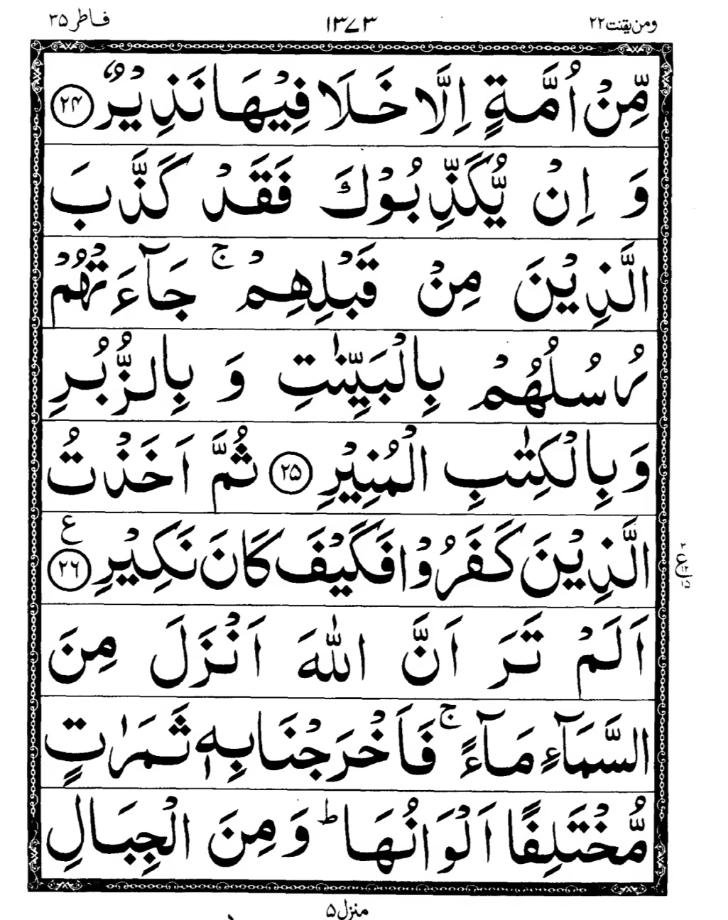 ومن یقنت ۲۲ ۱۳۷۳ فاطر ۳۵
مِّنْ اُمَّةٍ اِلَّا خَلَا فِيْهَا نَذِيْرٌ ۝۲۴
وَ اِنْ يُّكَذِّبُوْكَ فَقَدْ كَذَّبَ
الَّذِيْنَ مِنْ قَبْلِهِمْ ۚ جَآءَتْهُمْ
رُسُلُهُمْ بِالْبَيِّنٰتِ وَ بِالزُّبُرِ
وَ بِالْكِتٰبِ الْمُنِيْرِ ۝۲۵ ثُمَّ اَخَذْتُ
الَّذِيْنَ كَفَرُوْا فَكَيْفَ كَانَ نَكِيْرِ ۝۲۶ ع
اَلَمْ تَرَ اَنَّ اللّٰهَ اَنْزَلَ مِنَ
السَّمَآءِ مَآءً ۚ فَاَخْرَجْنَا بِهٖ ثَمَرٰتٍ
مُّخْتَلِفًا اَلْوَانُهَا ؕ وَ مِنَ الْجِبَالِ
منزل ۵